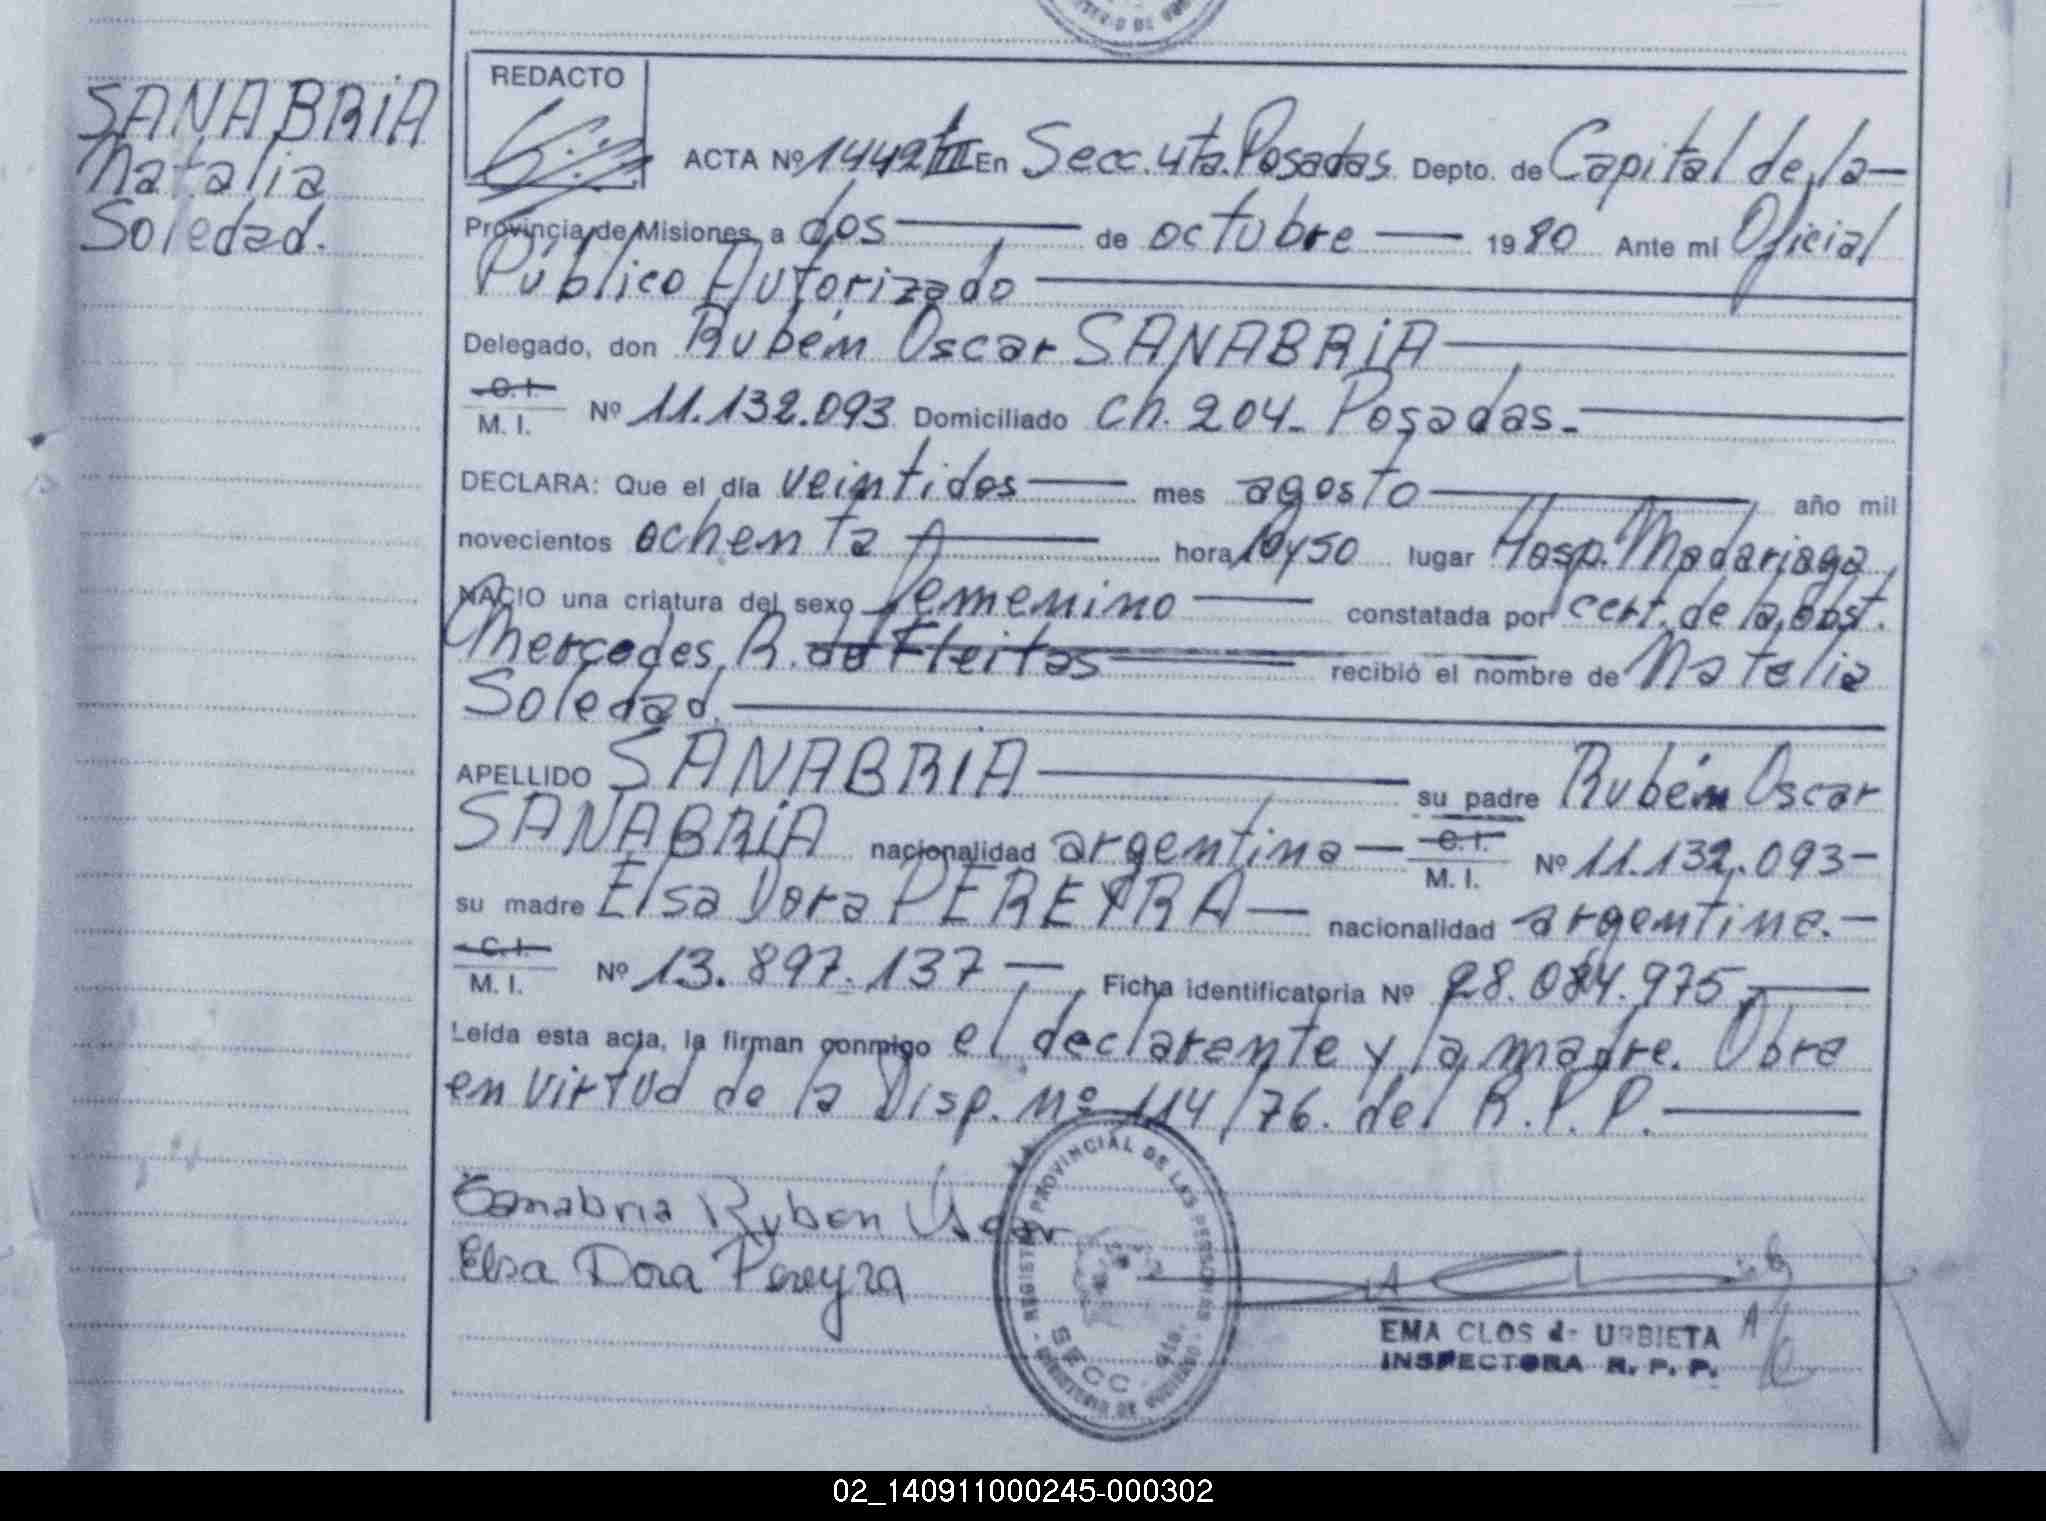 SANABRIA
Natalia
Soledad.
REDACTO
ACTA Nº 1442 TIII En Secc. 4ta. Posadas. Depto. de Capital de la
Provincia de Misiones, a dos de octubre 1980 Ante mi Oficial
Público Autorizado
Delegado, don Rubém Oscar SANABRIA
C. I.
M. I. Nº 11.132.093 Domiciliado Ch. 204. Posadas.
DECLARA: Que el día veintidos mes agosto año mil
novecientos ochenta hora 10y50 lugar Hosp. Madariaga
NACIO una criatura del sexo femenino constatada por cert. de la obst.
Mercedes R. de Fleitas recibió el nombre de Natalia
Soledad.
APELLIDO SANABRIA su padre Rubém Oscar
SANABRIA nacionalidad argentina C. I. M. I. Nº 11.132.093
su madre Elsa Dora PEREYRA nacionalidad argentina.
C. I.
M. I. Nº 13.897.137 Ficha identificatoria Nº 28.084.975
Leída esta acta, la firman conmigo el declarante y la madre. Obra
en virtud de la Disp. Nº 114/76. del R.P.P.
Sanabria Ruben Oscar
Elsa Dora Pereyra
REGISTRO PROVINCIAL DE LAS PERSONAS
SECC. 4ta.
MINISTERIO DE GOBIERNO
EMA CLOS de URBIETA
INSPECTORA R. P. P.
02_140911000245-000302